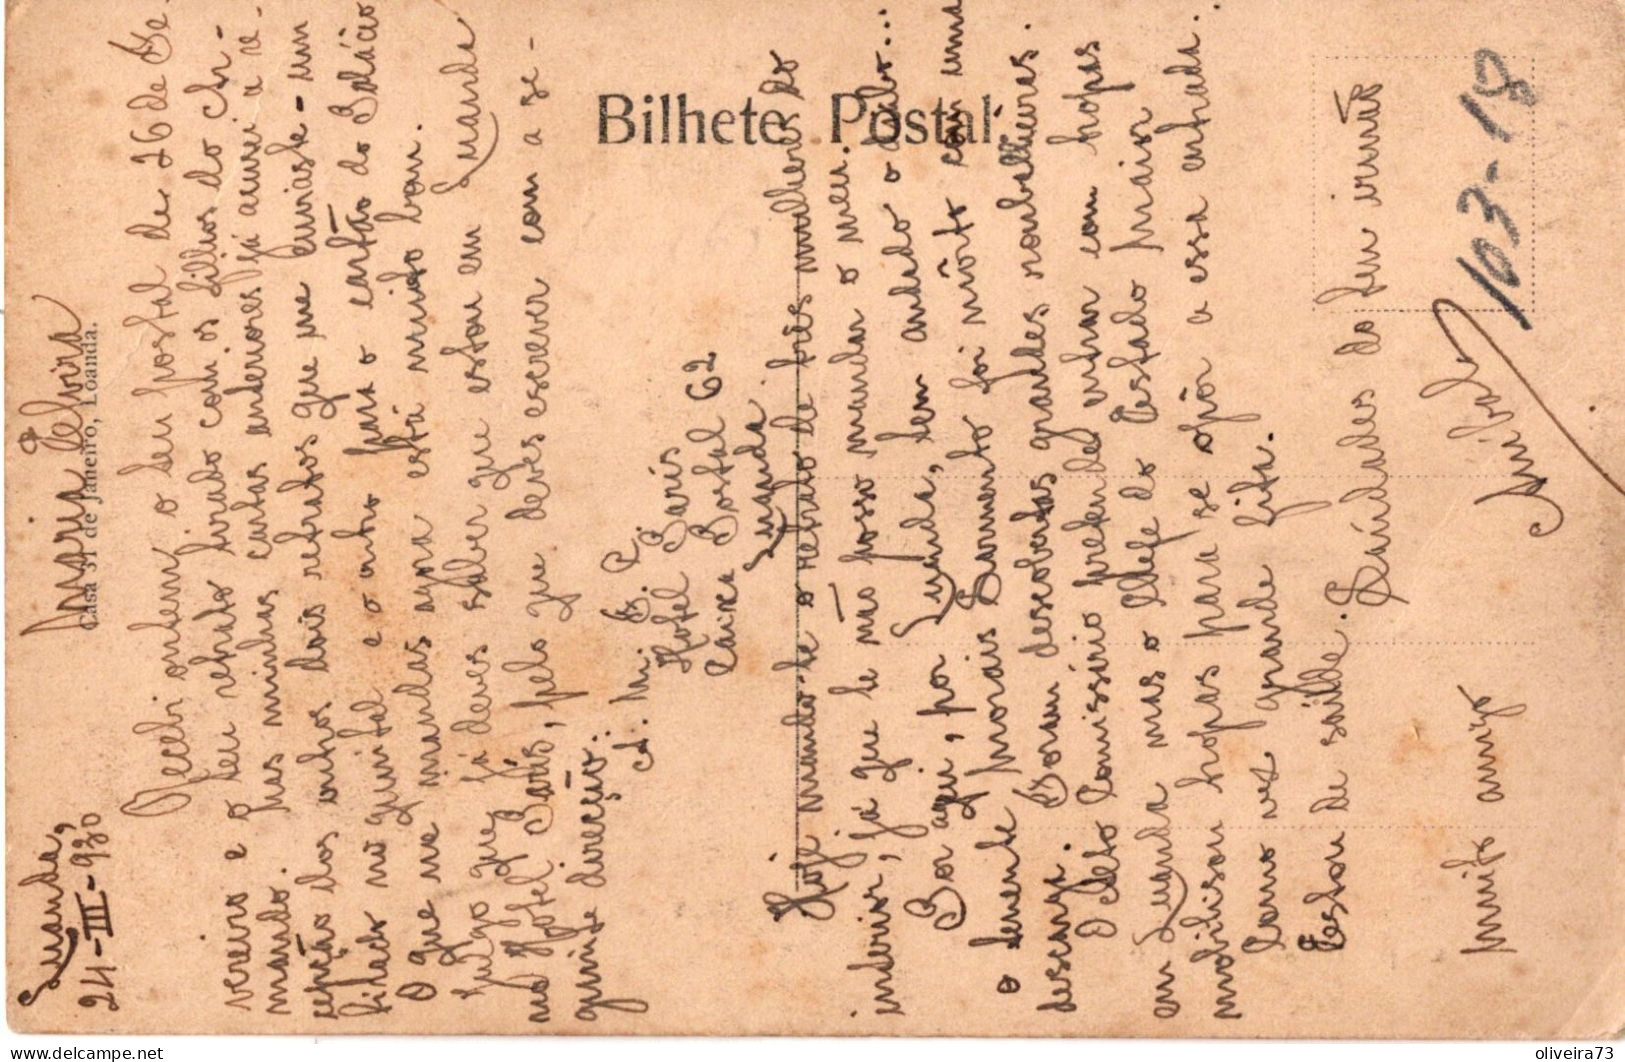 Luanda,
24-III-930
Maria Elvira
Casa 31 de Janeiro, Loanda.
Bilhete Postal
Recebi ontem o teu postal de 26 de Fe-
vereiro e o teu retrato tirado com os filhos do Ar-
mando. Nas minhas cartas anteriores já acusei a re-
cepção dos outros dois retratos que me enviaste - um
tirado no quintal e o outro para o cartão do Palácio
O que me mandas agora está muito bom.
Julgo que já deves saber que estou em Luanda
no Hotel Paris, pelo que deves escrever com a se-
guinte direcção:
M. B. P.
Hotel Paris
Caixa Postal 62
Luanda
Hoje mando-te o retrato de três mulheres do
interior, já que te não posso mandar o meu.
Por aqui, por Luanda, tem andado o diabo...
o tenente Morais Sarmento foi môrto com uma
descarga. Foram descobertas grandes roubalheiras.
O Alto Comissário pretende entrar com tropas
em Luanda mas o Chefe do Estado Maior
mobilisou tropas para se opôr a essa entrada.
Como vês grande fita.
Estou de saúde. Saúdades do teu irmão
muito amigo
103-18
oliveira73